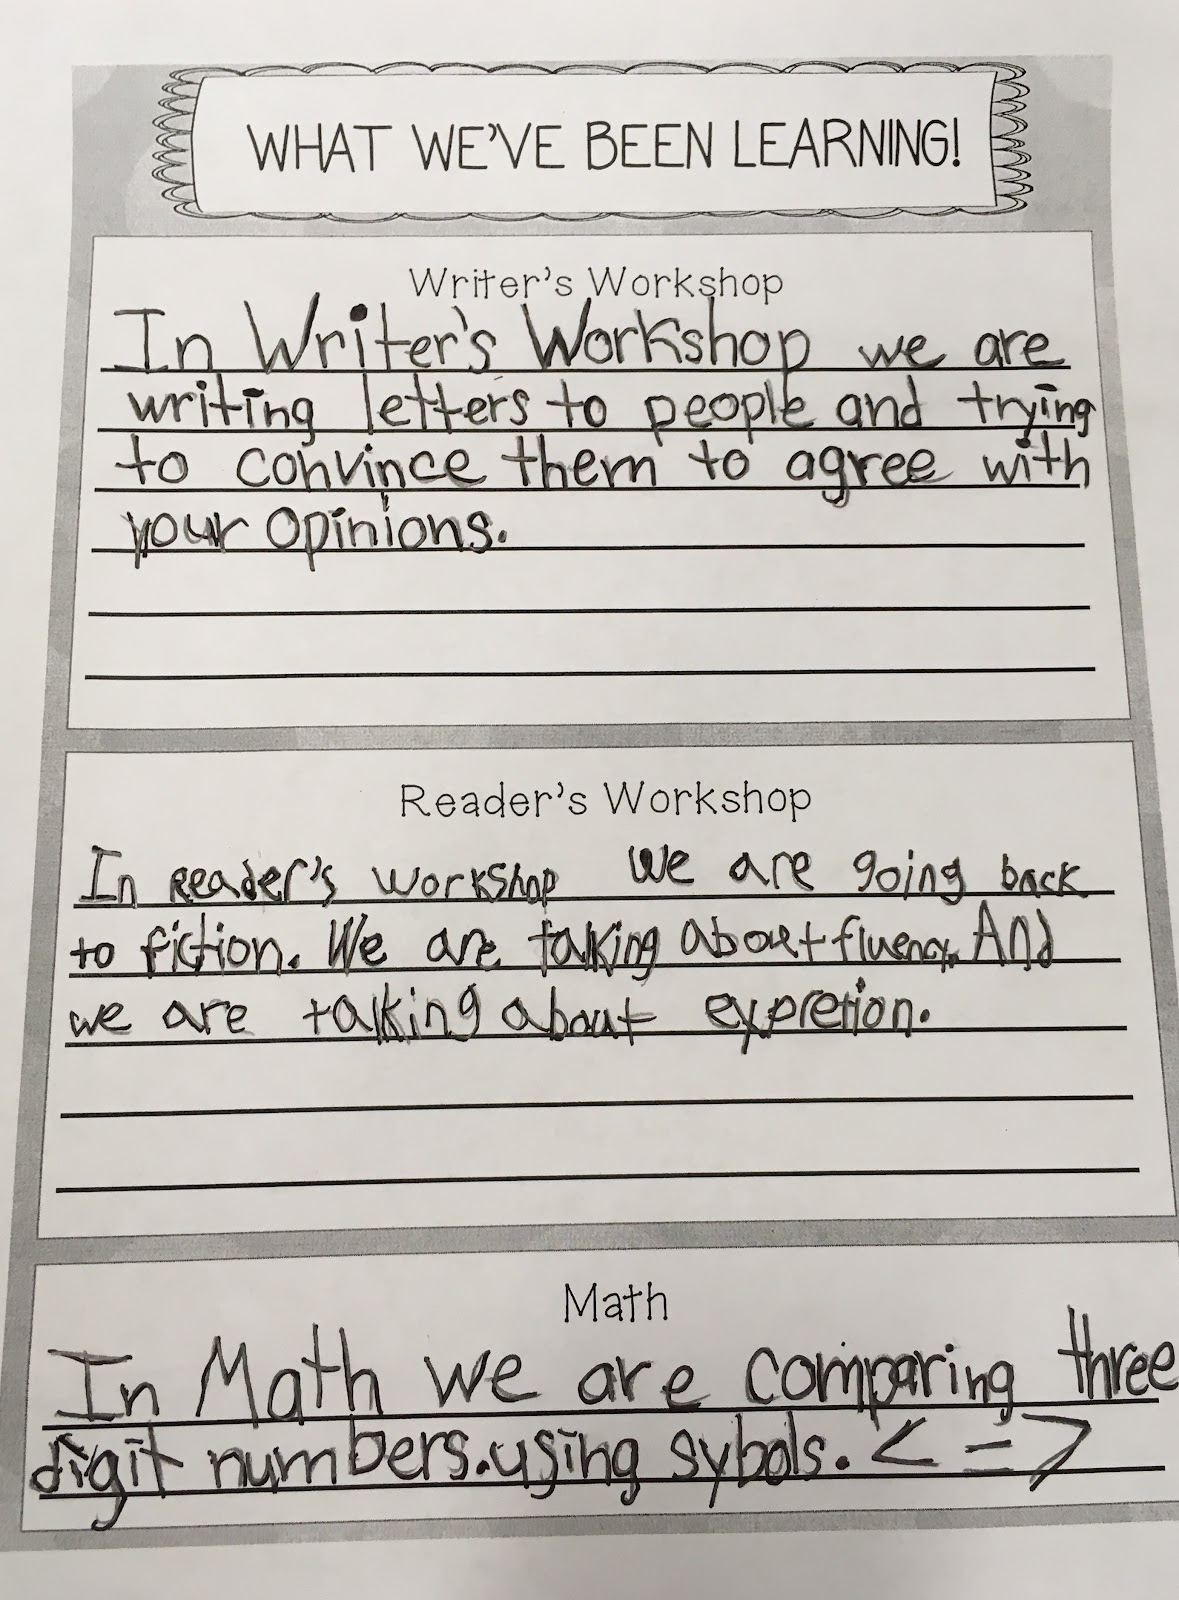 WHAT WE'VE BEEN LEARNING!
Writer's Workshop
In Writer's Workshop we are
writing letters to people and trying
to convince them to agree with
your opinions.
Reader's Workshop
In Reader's workshop we are going back
to fiction. We are talking about fluency. And
we are talking about expretion.
Math
In Math we are comparing three
digit numbers.using sybols. < = >